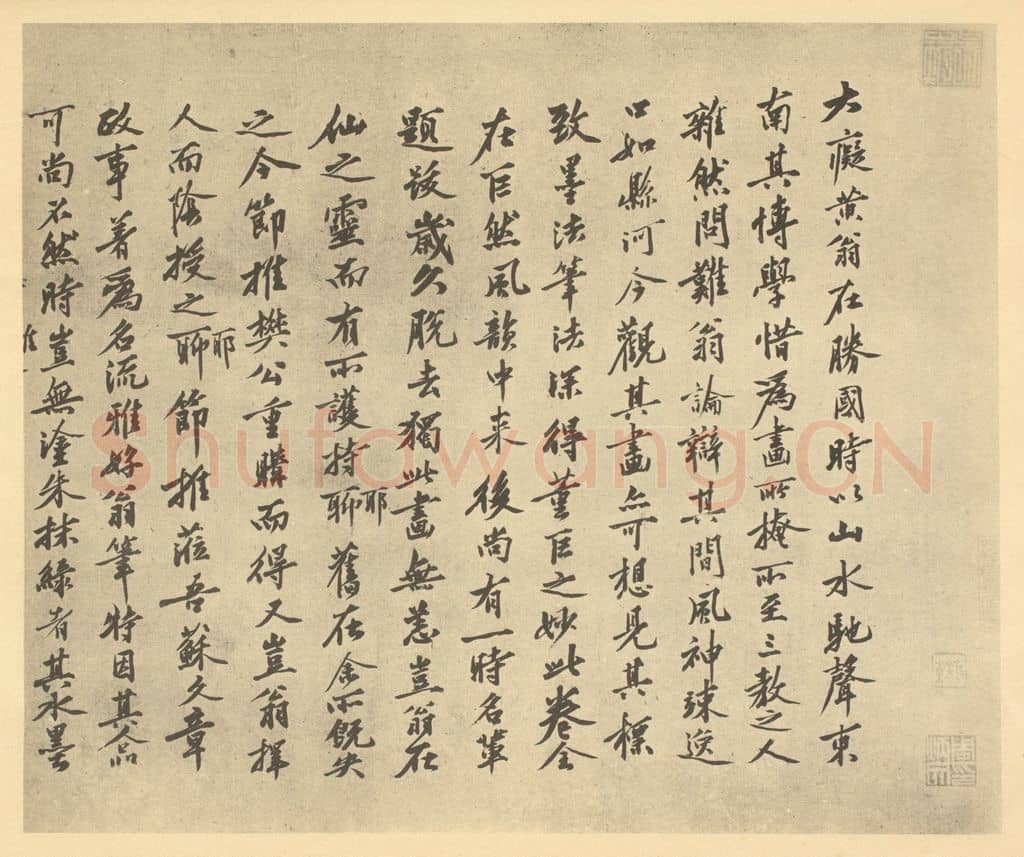 大癡黄翁在勝國時以山水馳聲東
南其博學惜爲畫所掩所至三教之人
雜然問難翁論辯其間風神竦逸
口如縣河今觀其畫亦可想見其標
致墨法筆法深得董巨之妙此卷全
在巨然風韻中来後尚有一時名輩
題跋歲久脫去獨此畫無恙豈翁在
仙之靈而有所護持聊耶舊在余所既失
之今節推樊公重購而得又豈翁擇
人而陰授之聊耶節推蒞吾蘇文章
政事著爲名流雅好翁筆特因其人品
可尚不然時豈無塗朱抹綠者其水墨
Shufawang.CN